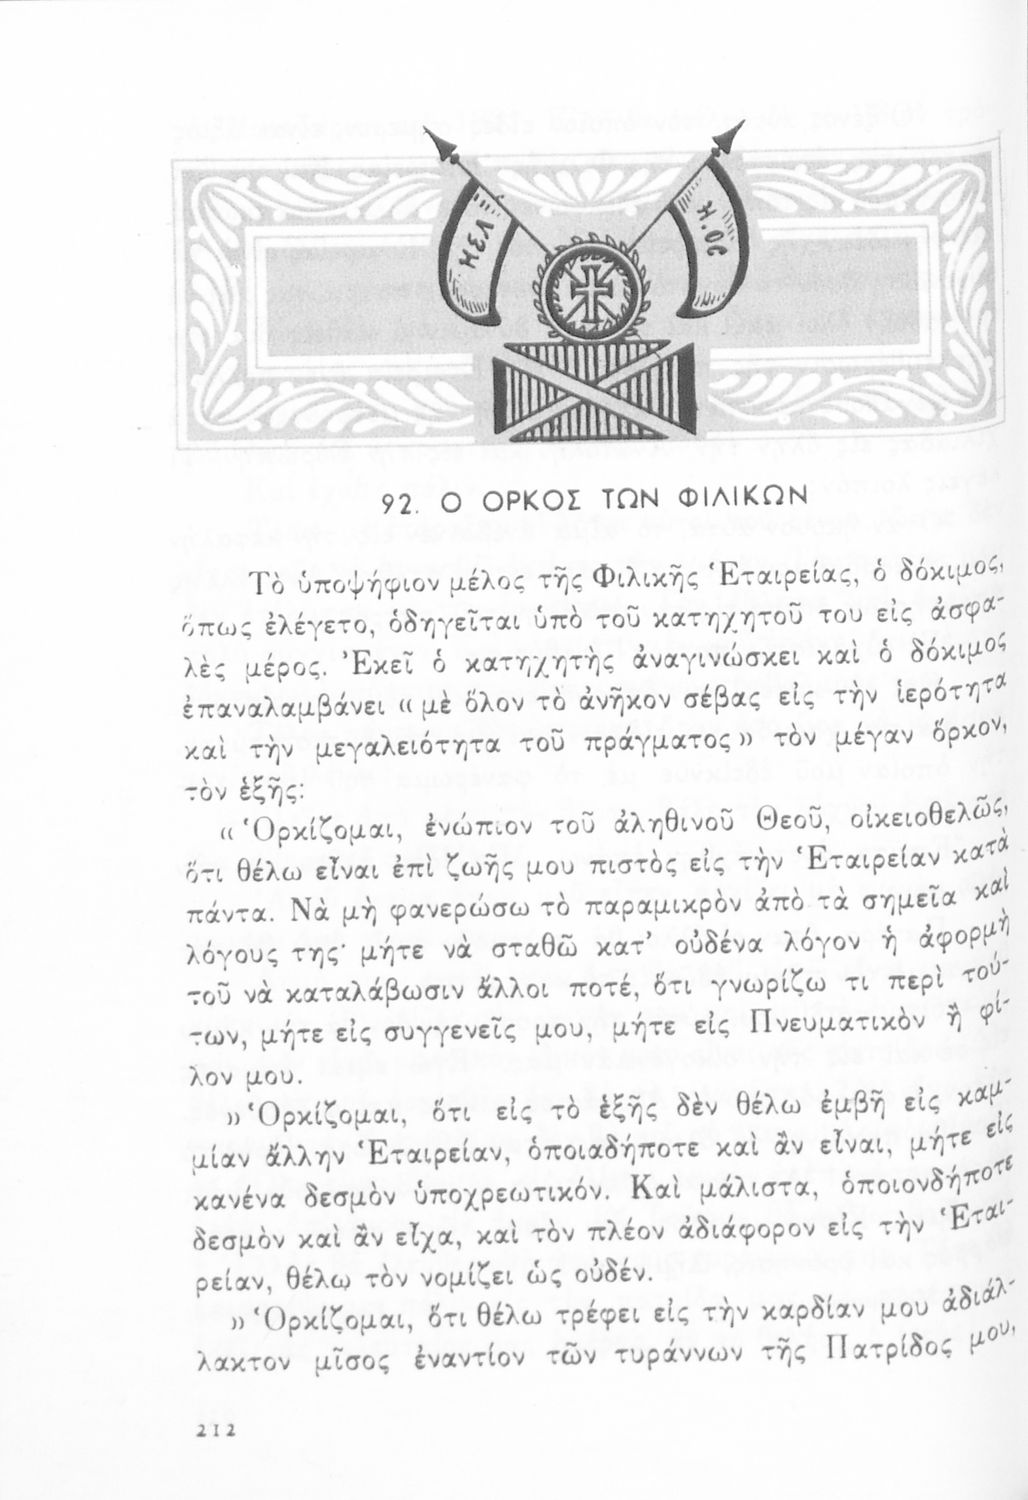 ΗΕΛ
Η.ΘΣ
92. Ο ΟΡΚΟΣ ΤΩΝ ΦΙΛΙΚΩΝ
Τὸ ὑποψήφιον μέλος τῆς Φιλικῆς Ἑταιρείας, ὁ δόκιμος,
ὅπως ἐλέγετο, ὁδηγεῖται ὑπὸ τοῦ κατηχητοῦ του εἰς ἀσφα-
λὲς μέρος. Ἐκεῖ ὁ κατηχητὴς ἀναγινώσκει καὶ ὁ δόκιμος
ἐπαναλαμβάνει «μὲ ὅλον τὸ ἀνῆκον σέβας εἰς τὴν ἱερότητα
καὶ τὴν μεγαλειότητα τοῦ πράγματος» τὸν μέγαν ὅρκον,
τὸν ἑξῆς:
«Ὁρκίζομαι, ἐνώπιον τοῦ ἀληθινοῦ Θεοῦ, οἰκειοθελῶς,
ὅτι θέλω εἶναι ἐπὶ ζωῆς μου πιστὸς εἰς τὴν Ἑταιρείαν κατὰ
πάντα. Νὰ μὴ φανερώσω τὸ παραμικρὸν ἀπὸ τὰ σημεῖα καὶ
λόγους της· μήτε νὰ σταθῶ κατ’ οὐδένα λόγον ἡ ἀφορμὴ
τοῦ νὰ καταλάβωσιν ἄλλοι ποτέ, ὅτι γνωρίζω τι περὶ τού-
των, μήτε εἰς συγγενεῖς μου, μήτε εἰς Πνευματικὸν ἢ φί-
λον μου.
»Ὁρκίζομαι, ὅτι εἰς τὸ ἑξῆς δὲν θέλω ἐμβῆ εἰς καμ-
μίαν ἄλλην Ἑταιρείαν, ὁποιαδήποτε καὶ ἂν εἶναι, μήτε εἰς
κανένα δεσμὸν ὑποχρεωτικόν. Καὶ μάλιστα, ὁποιονδήποτε
δεσμὸν καὶ ἂν εἶχα, καὶ τὸν πλέον ἀδιάφορον εἰς τὴν Ἑται-
ρείαν, θέλω τὸν νομίζει ὡς οὐδέν.
»Ὁρκίζομαι, ὅτι θέλω τρέφει εἰς τὴν καρδίαν μου ἀδιάλ-
λακτον μῖσος ἐναντίον τῶν τυράννων τῆς Πατρίδος μου,
212